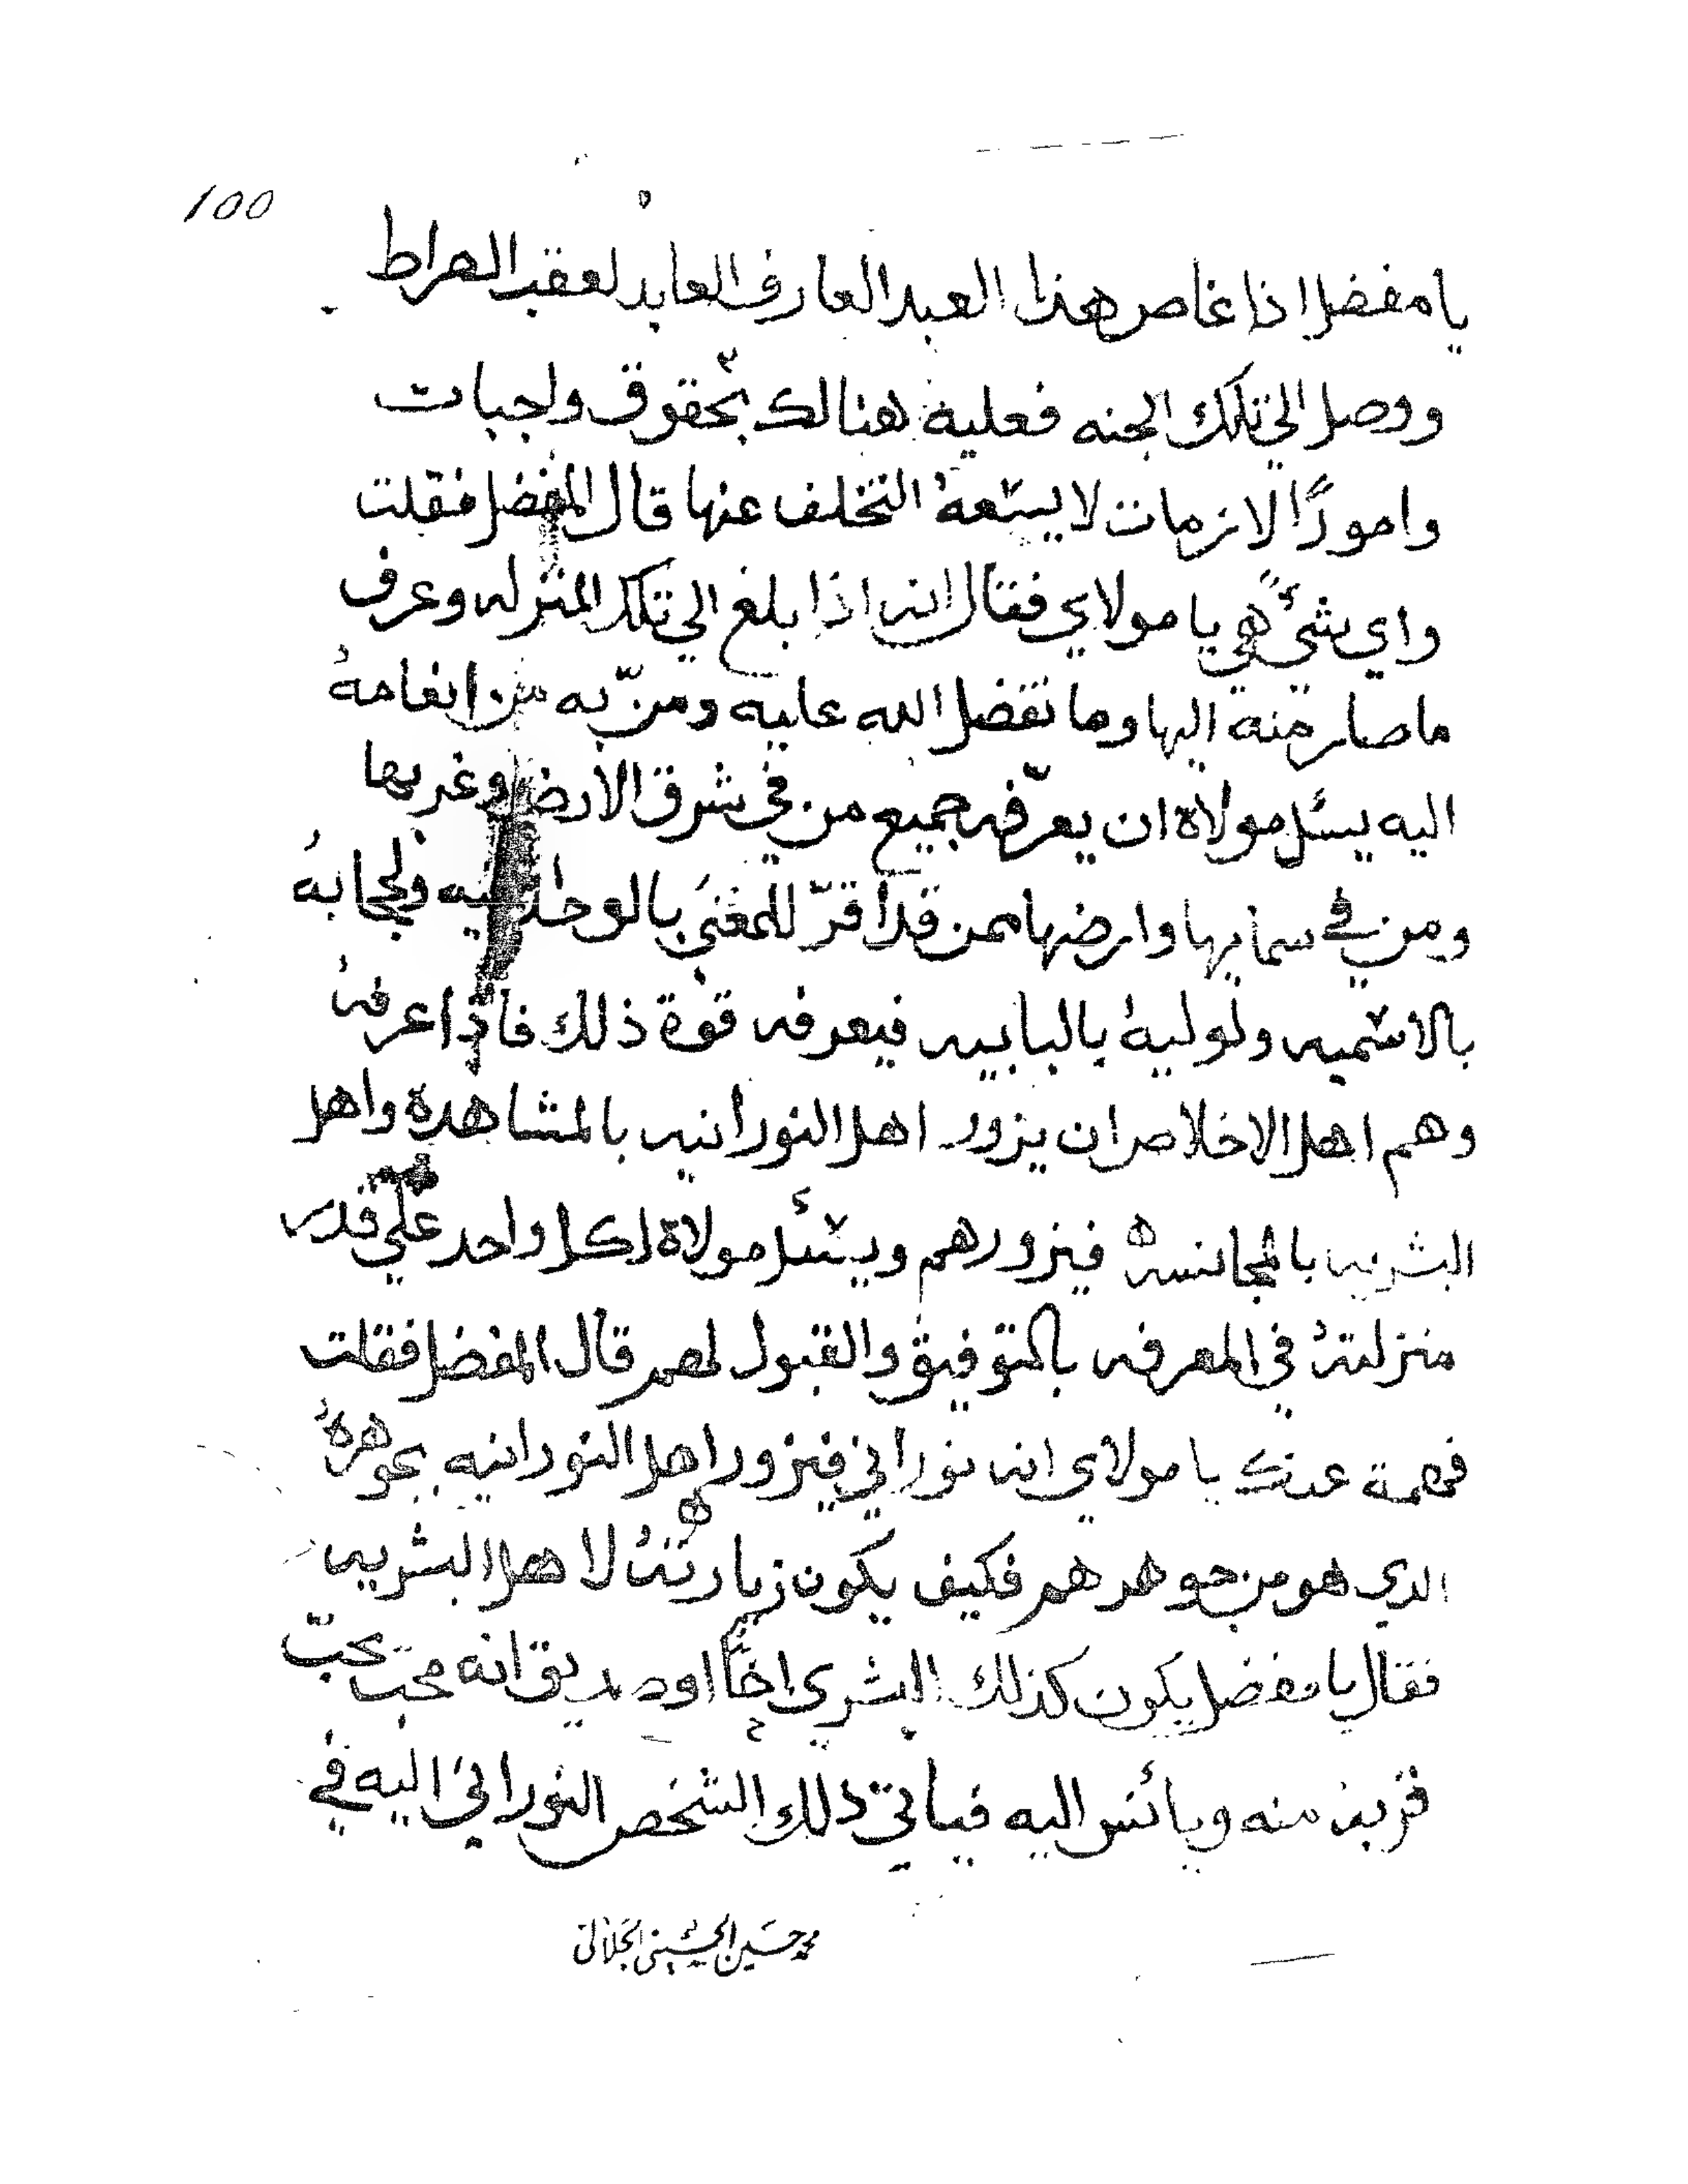 100
يا مفضل اذا غاص هذا العبد العارف العابد لعقبه الصراط
ووصل الي تلك الجنه فعليه هنالك بحقوق واجبات
وامورًا لازمات لا يسعهُ التخلف عنها قال المفضل فقلت
واي شيءً هي يا مولاي فقال انه اذا بلغ الي تلك المنزله وعرف
ما صار منه اليها وما تفضل الله عليه ومنّ به من انعامهُ
اليه يسئل مولاة ان يعرّفه جميع من في شرق الارض وغربها
ومن في سمايها وارضها ممن قد اقرّ للمعني بالوحدانيه ولحجابهُ
بالاسميه ولوليهُ بالبابيه فيعرفه قوة ذلك فاذا عرفهُ
وهم اهل الاخلاص ان يزور اهل النورانيه بالمشاهدة واهل
البشريه بالمجانسه فيزورهم ويسئل مولاة لكل واحد علي قدر
منزلتهُ في المعرفه بالتوفيق والقبول لهم قال المفضل فقلت
فهمة عنك يا مولاي انه نوراني فيزور اهل النورانيه بجوهرهُ
الدي هو من جوهرهم فكيف يكون زيارتهُ لاهل البشريه
فقال يا مفضل يكون كذلك البشري اخًا او صديق انه محب يحبّ
قربه منه ويأنس اليه فياتي دلك الشخص النوراني اليه في
محمد حسين الحسيني الجلالي